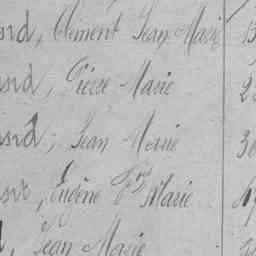 nd, Clément Jean Marie 13
and, Pierre Marie 2
and, Jean Marie 30
Eugène Fçois Marie
, Jean Marie